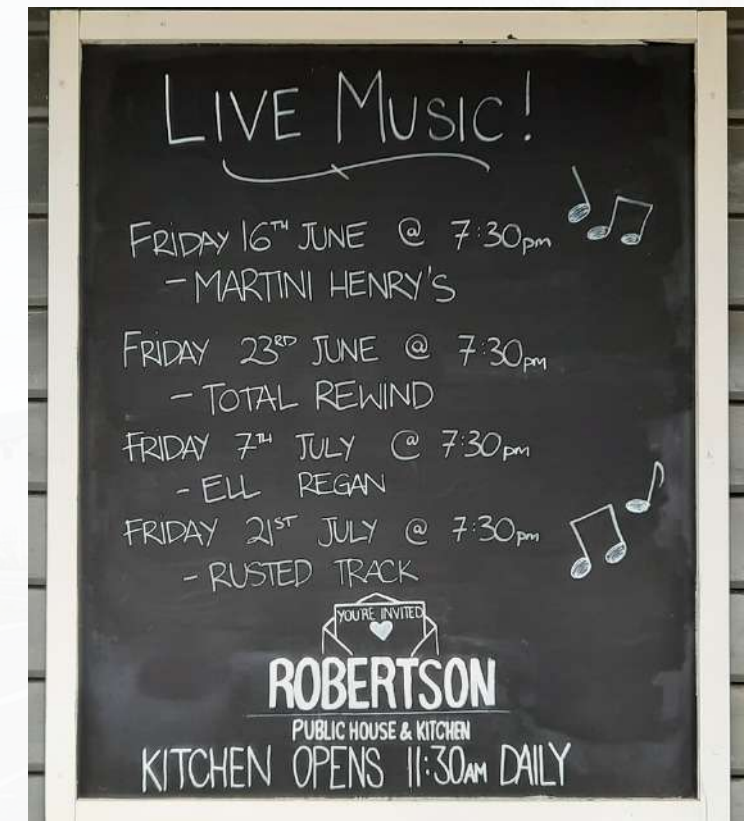 LIVE MUSIC!
FRIDAY 16TH JUNE @ 7:30pm
- MARTINI HENRY'S
FRIDAY 23RD JUNE @ 7:30pm
- TOTAL REWIND
FRIDAY 7TH JULY @ 7:30pm
- ELL REGAN
FRIDAY 21ST JULY @ 7:30pm
- RUSTED TRACK
YOU'RE INVITED
ROBERTSON
PUBLIC HOUSE & KITCHEN
KITCHEN OPENS 11:30AM DAILY